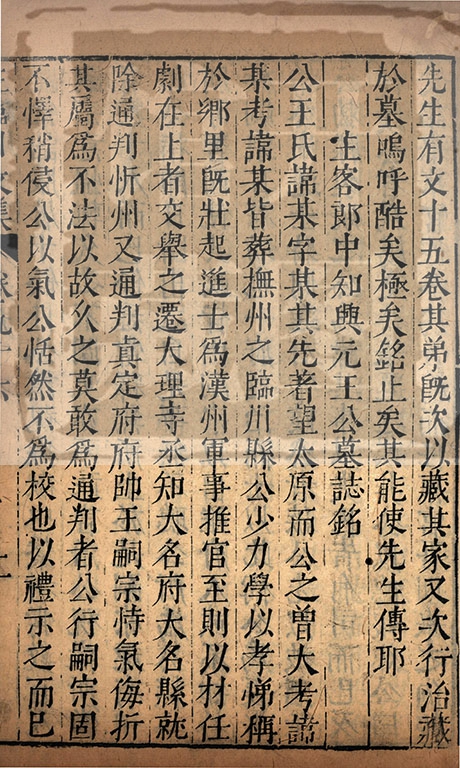 先生有文十五卷其弟旣次以藏其家又次行治藏
於墓嗚呼酷矣極矣銘止矣其能使先生傳耶
主客郎中知興元王公墓誌銘
公王氏諱某字某其先著望太原而公之曾大考諱
某考諱某皆葬撫州之臨川縣公少力學以孝悌稱
於鄉里旣壯起進士爲漢州軍事推官至則以材任
劇在上者交舉之遷大理寺丞知大名府大名縣就
除通判忻州又通判真定府府帥王嗣宗恃氣侮折
其屬爲不法以故久之莫敢爲通判者公行嗣宗固
不懌稍侵公以氣公恬然不爲校也以禮示之而已